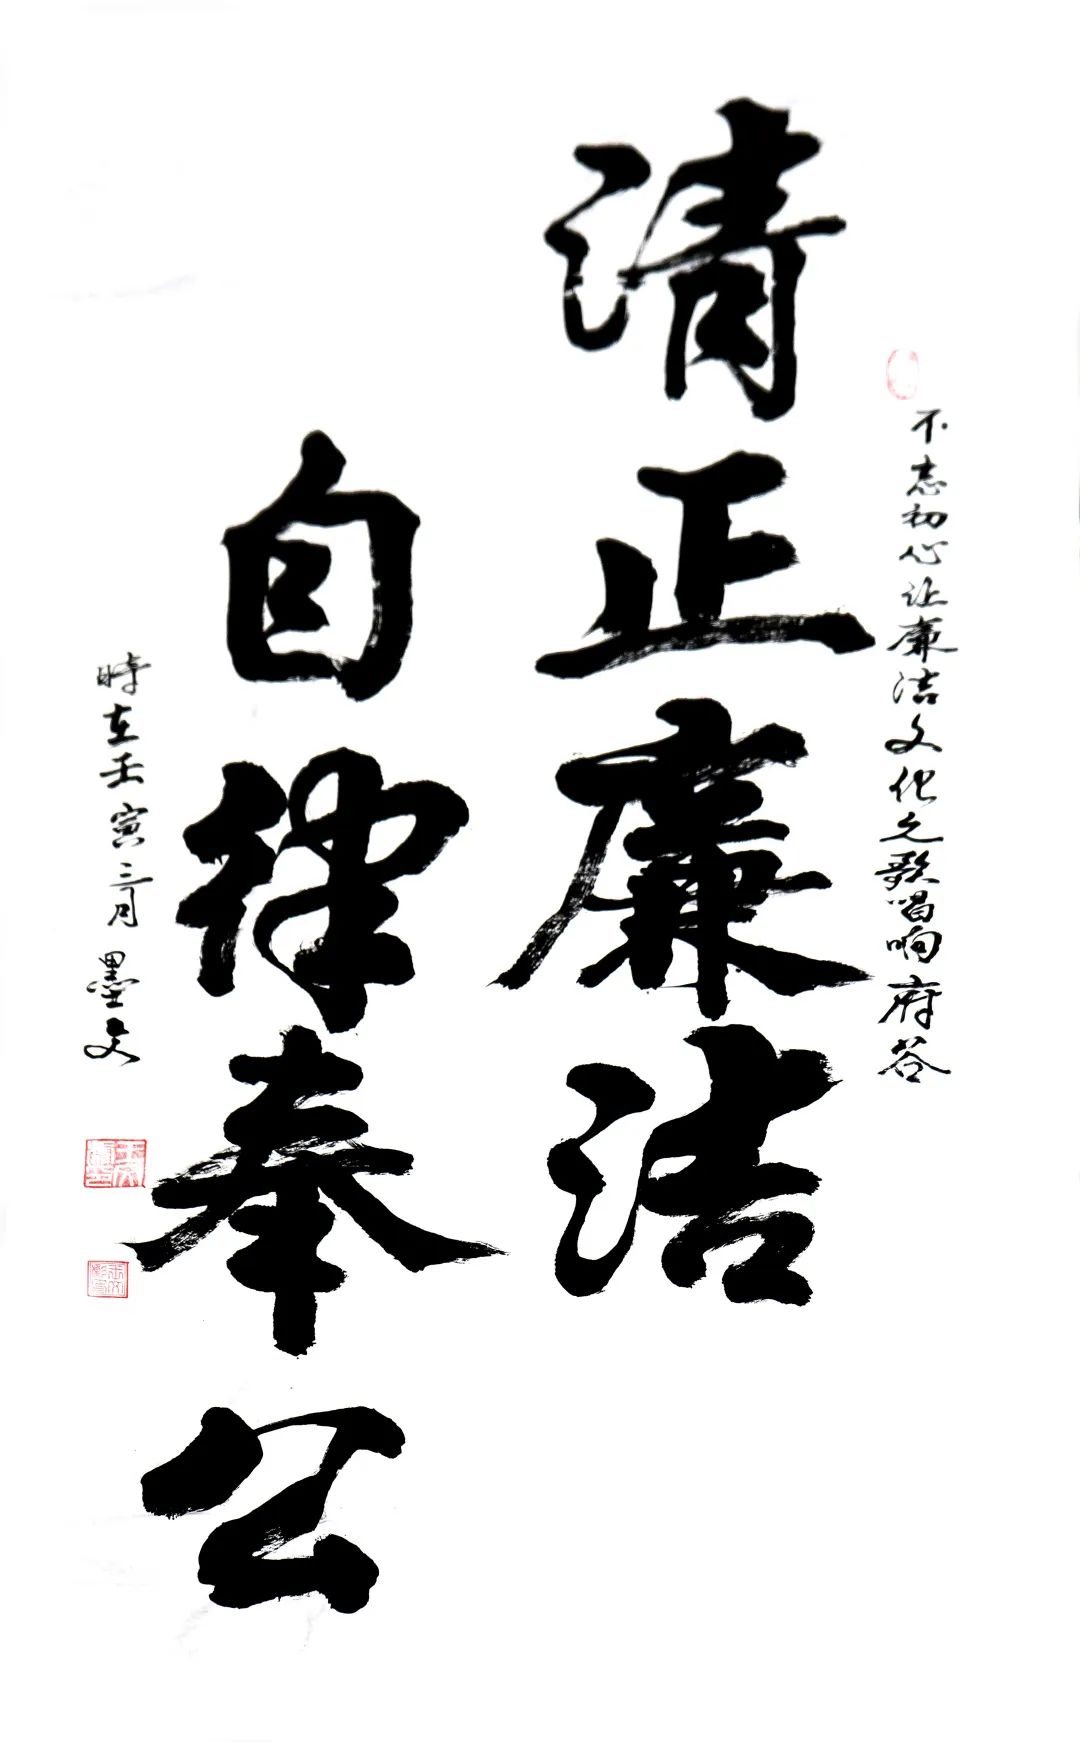 不忘初心让廉洁文化之歌唱响府谷
清正廉洁
自律奉公
時在壬寅三月 墨文